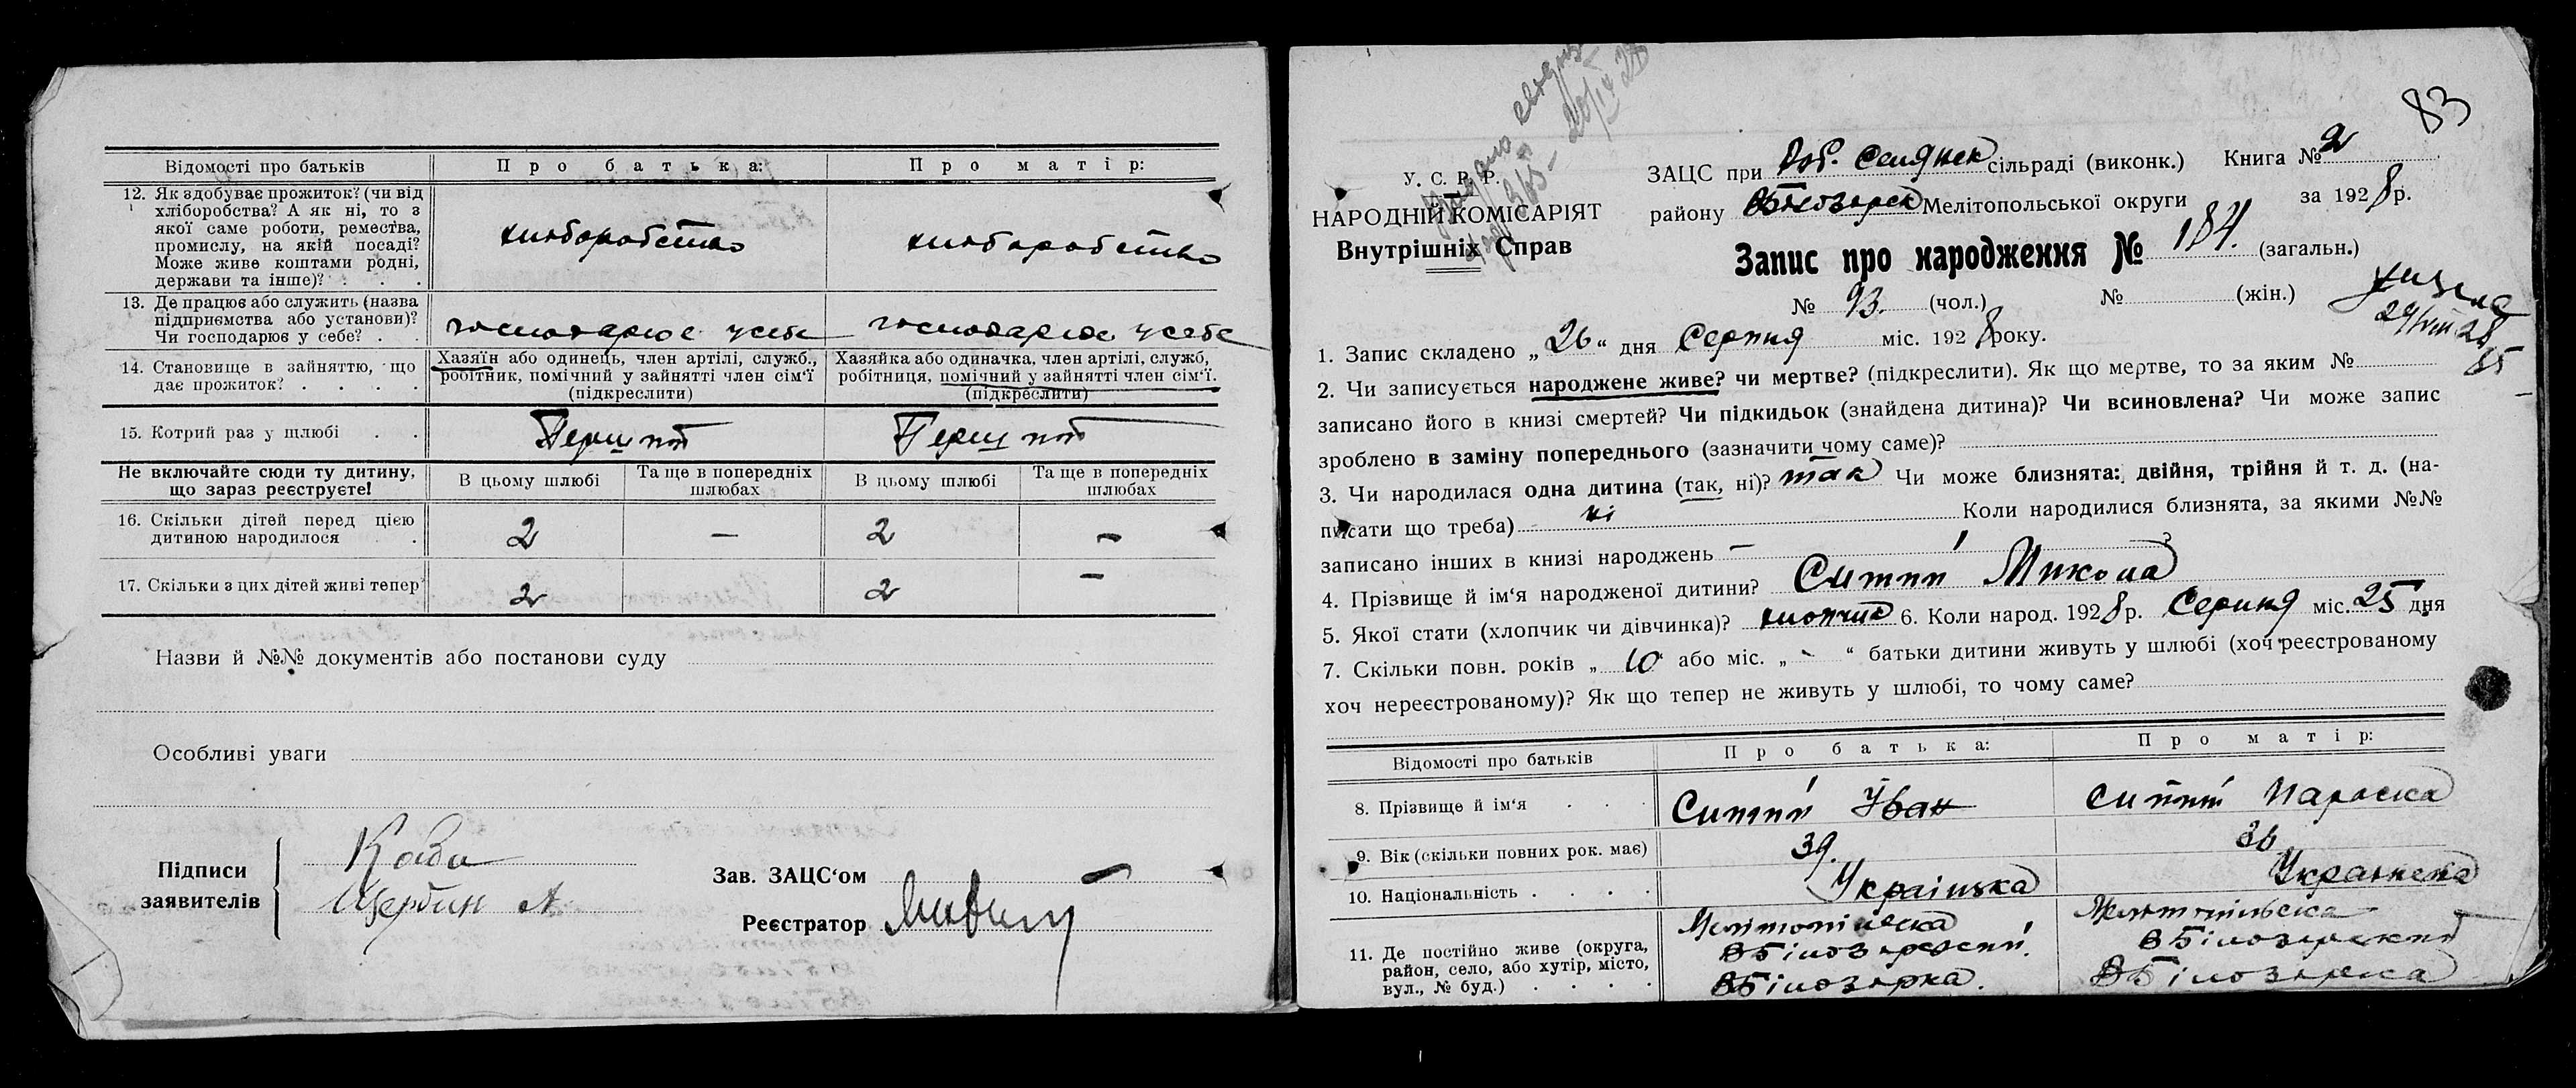 Відомості про батьків
Про батька:
Про матір:
12. Як здобуває прожиток? (чи від
хліборобства? А як ні, то з
якої саме роботи, ремества,
промислу, на якій посаді?
Може живе коштами родні,
держави та інше)? . . .
хліборобство
хліборобство
13. Де працює або служить (назва
підприємства або установи)?
Чи господарює у себе? . .
господарює у себе
господарює у себе
14. Становище в зайняттю, що
дає прожиток? . . . .
Хазяїн або одинець, член артілі, служб.,
робітник, помічний у зайнятті член сім'ї
(підкреслити)
Хазяйка або одиначка, член артілі, служб,
робітниця, помічний у зайнятті член сім'ї.
(підкреслити)
15. Котрий раз у шлюбі . .
Перший
Перший
Не включайте сюди ту дитину,
що зараз реєструєте!
В цьому шлюбі
Та ще в попередніх
шлюбах
В цьому шлюбі
Та ще в попередніх
шлюбах
16. Скільки дітей перед цією
дитиною народилося .
2 — 2 —
17. Скільки з цих дітей живі тепер
2 2 —
Назви й №№ документів або постанови суду
Особливі уваги
Підписи
заявителів
Щербин А
Зав. ЗАЦС'ом —
Реєстратор
83
У. С. Р. Р.
НАРОДНІЙ КОМІСАРІЯТ
Внутрішніх Справ
ЗАЦС при сільраді (виконк.) Книга № 2
району В Білозерск Мелітопольської округи за 1928 р.
Запис про народження № 184. (загальн.)
№ 93. (чол.) № (жін.)
1. Запис складено „26“ дня Серпня міс. 1928 року.
2. Чи записується народжене живе? чи мертве? (підкреслити). Як що мертве, то за яким №
записано його в книзі смертей? Чи підкидьок (знайдена дитина)? Чи всиновлена? Чи може запис
зроблено в заміну попереднього (зазначити чому саме)?
3. Чи народилася одна дитина (так, ні)? так Чи може близнята: двійня, трійня й т. д. (на-
писати що треба) ні Коли народилися близнята, за якими №№
записано інших в книзі народжень — ?
4. Прізвище й ім'я народженої дитини? Ситий Микола
5. Якої стати (хлопчик чи дівчинка)? хлопчик 6. Коли народ. 1928 р. Серпня міс. 25 дня
7. Скільки повн. років „10“ або міс. „-“ батьки дитини живуть у шлюбі (хоч реєстрованому
хоч нереєстрованому)? Як що тепер не живуть у шлюбі, то чому саме?
Відомості про батьків
Про батька:
Про матір:
8. Прізвище й ім'я . . .
Ситий Іван
Ситий Параска
9. Вік (скільки повних рок. має)
39.
36
10. Національність . . . .
Українська
Українська
11. Де постійно живе (округа,
район, село, або хутір, місто,
вул., № буд.) . . . .
Мелітопільска
В Білозерский
В Білозерка.
Мелітопільска
В Білозерский
В Білозерка